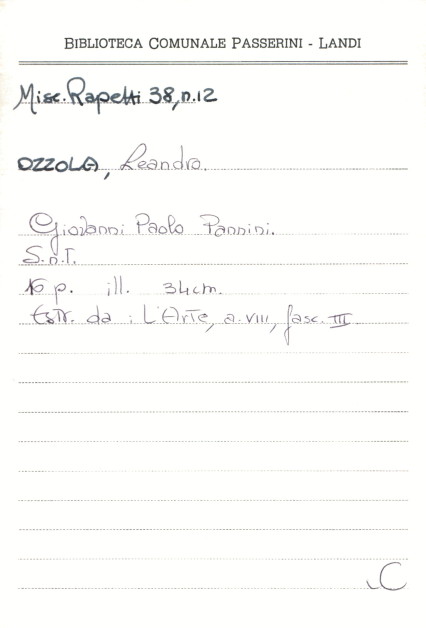 BIBLIOTECA COMUNALE PASSERINI - LANDI
Misc. Rapetti 38, n.12
OZZOLA, Leandro.
Giovanni Paolo Pannini.
S.n.T.
16 p. ill. 34cm.
Estr. da : L'Arte, a. VIII, fasc. III
C